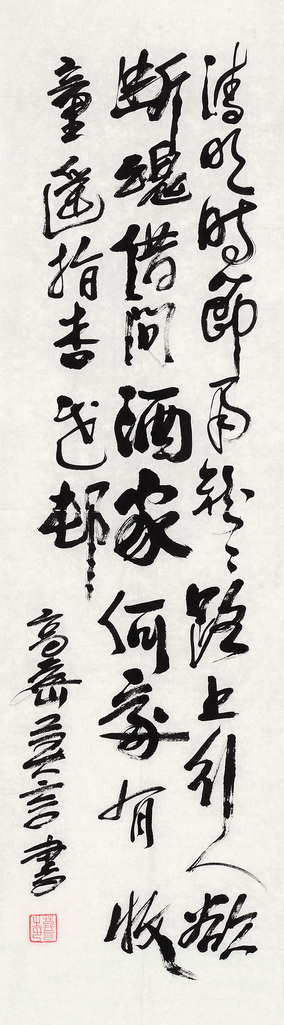 清明時節雨紛々路上行人欲
断魂借問酒家何處有牧
童遥指杏花邨
高密莫言書